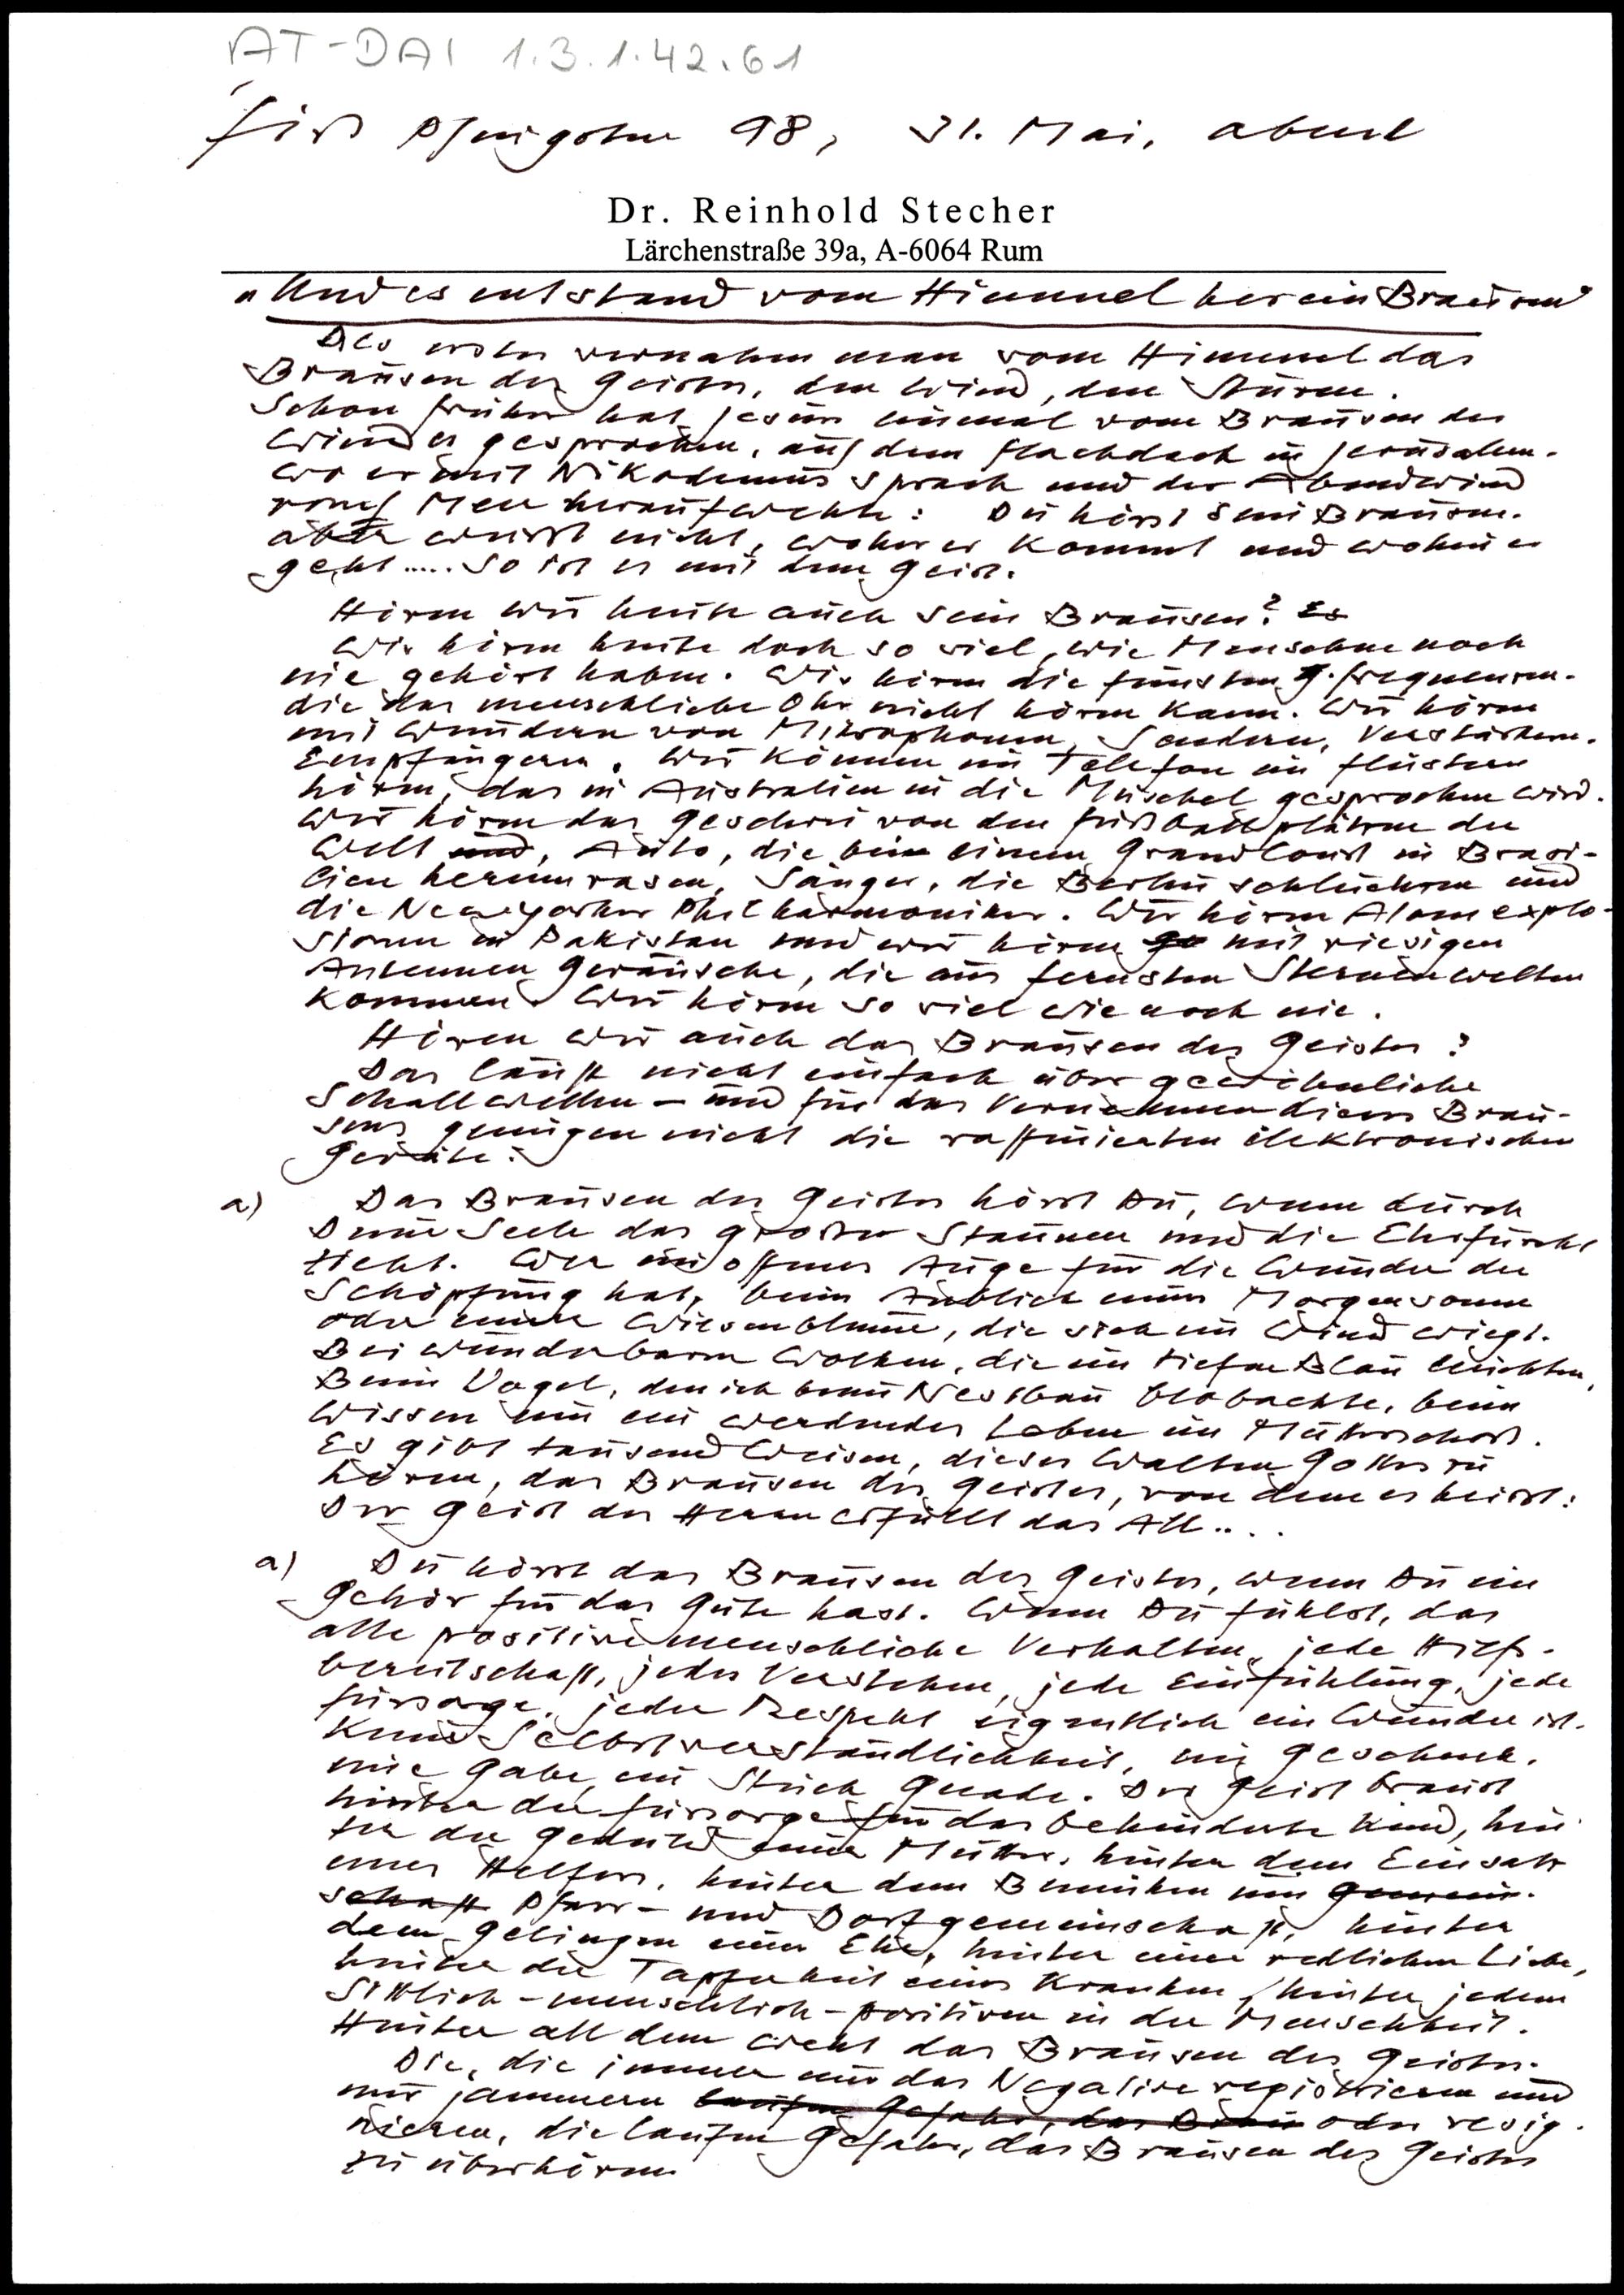 AT-DAI 1.3.1.42.61
Fiss Pfingsten 98, 31. Mai, abend
Dr. Reinhold Stecher
Lärchenstraße 39a, A-6064 Rum
"Und es entstand vom Himmel her ein Brausen"
Als erstes vernahm man vom Himmel das
Brausen des Geistes, den Wind, den Sturm.
Schon früher hat Jesus einmal vom Brausen des
Windes gesprochen, auf dem Flachdach in Jerusalem.
wo er mit Nikodemus sprach und der Abendwind
vom Meer heraufwehte: Du hörst sein Brausen.
aber weisst nicht, woher er kommt und wohin er
geht ..... So ist es mit dem Geist.
Hören wir heute auch sein Brausen? Es
Wir hören heute doch so viel, wie Menschen noch
nie gehört haben. Wir hören die feinsten Frequenzen.
die das menschliche Ohr nicht hören kann. Wir hören
mit Wundern von Mikrophonen, Sendern, Verstärkern.
Empfängern. Wir können im Telefon ein Flüstern
hören, das in Australien in die Muschel gesprochen wird.
Wir hören das Geschrei von den Fußballplätzen der
Welt und, Auto, die beim einem Grand in Brasi-
lien herumrasen, Sänger, die Berlin schluchzen und
die Newyorker Philharmoniker. Wir hören Atomexplo-
sionen in Pakistan und wir hören ge mit riesigen
Antennen Geräusche, die aus fernsten Sternenwelten
kommen. Wir hören so viel wie noch nie.
Hören wir auch das Brausen des Geistes?
Das läuft nicht einfach über gewöhnliche
Schallwellen - und für das Vernehmen dieses Brau-
sens genügen nicht die raffinierten elektronischen
Geräte:
a) Das Brausen des Geistes hörst Du, wenn durch
Deine Seele das große Staunen und die Ehrfurcht
zieht. Wer ein offenes Auge für die Wunder der
Schöpfung hat, beim Anblick einer Morgensonne
oder einer Wiesenblume, die sich im Wind wiegt.
Bei wunderbaren Wolken, die im tiefen Blau leuchten,
Beim Vogel, den ich beim Nestbau beobachte, beim
Wissen um ein werdendes Leben im Mutterschoß.
Es gibt tausend Weisen, dieses Walten Gottes zu
hören, das Brausen des Geistes, von dem es heisst:
Der Geist des Herrn erfüllt das All....
a) Du hörst das Brausen des Geistes, wenn Du ein
Gehör für das Gute hast. Wenn Du fühlst, das
alle positive menschliche Verhalten, jede Hilfs-
bereitschaft, jedes Verstehen, jede Einfühlung, jede
Fürsorge, jeder Respekt eigentlich ein Wunder ist.
Keine Selbstverständlichkeit, ein Geschenk.
eine Gabe, ein Stück Gnade. Der Geist braust
hinter der Fürsorge für das behinderte Kind, hin-
ter der Geduld einer Mutter. hinter dem Einsatz
eines Helfers, hinter dem Bemühen um Gemein-
schaft Pfarr- und Dorfgemeinschaft, hinter
dem Gelingen einer Ehe, hinter einer redlichen Liebe,
hinter der Tapferkeit eines Kranken, hinter jedem
Sittlich-menschlich-positiven in der Menschheit.
Hinter all dem weht das Brausen des Geistes.
Die, die immer nur das Negative registrieren und
nur jammern laufen Gefahr, das Brau oder resig-
nieren, die laufen Gefahr, das Brausen des Geistes
zu überhören